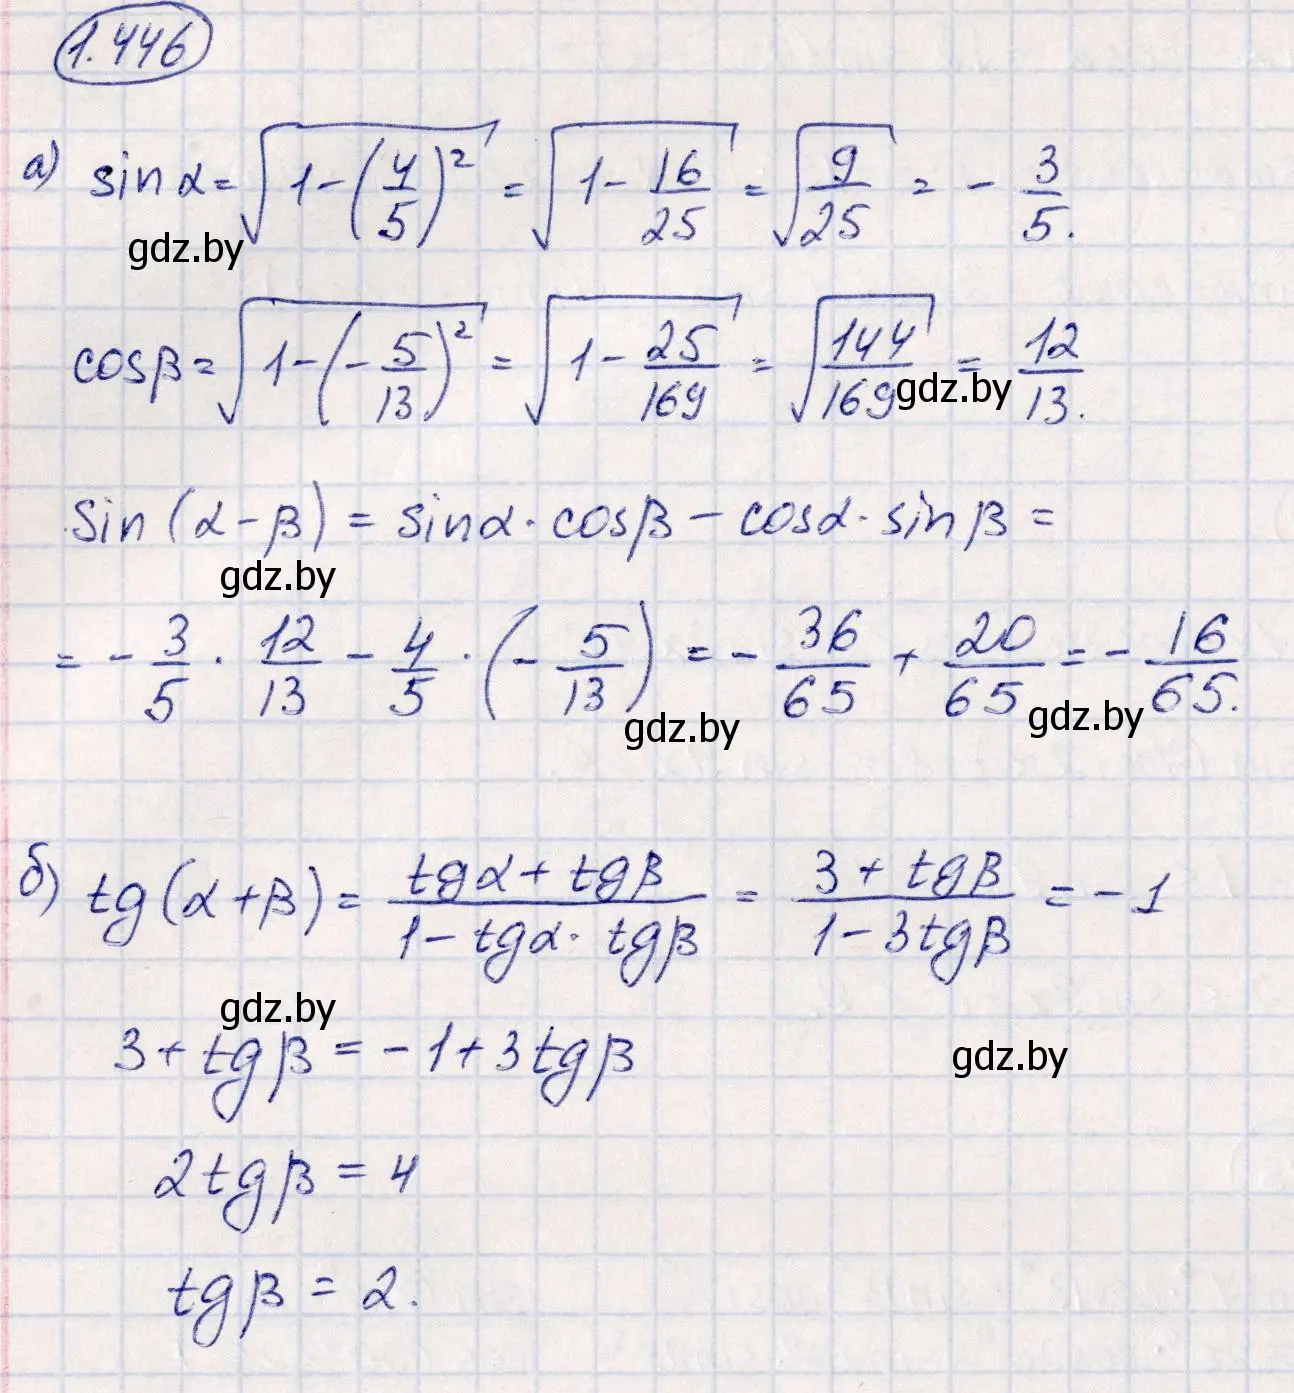 1.446
а) sin α = √(1 - (4/5)²) = √(1 - 16/25) = √(9/25) = - 3/5.
gdz.by
cos β = √(1 - (- 5/13)²) = √(1 - 25/169) = √(144/169) = 12/13.
gdz.by
sin (α - β) = sin α · cos β - cos α · sin β =
gdz.by
= - 3/5 · 12/13 - 4/5 · (- 5/13) = - 36/65 + 20/65 = - 16/65.
gdz.by gdz.by
б) tg (α + β) = (tg α + tg β)/(1 - tg α · tg β) = (3 + tg β)/(1 - 3 tg β) = - 1
gdz.by
3 + tg β = - 1 + 3 tg β
gdz.by
2 tg β = 4
tg β = 2.